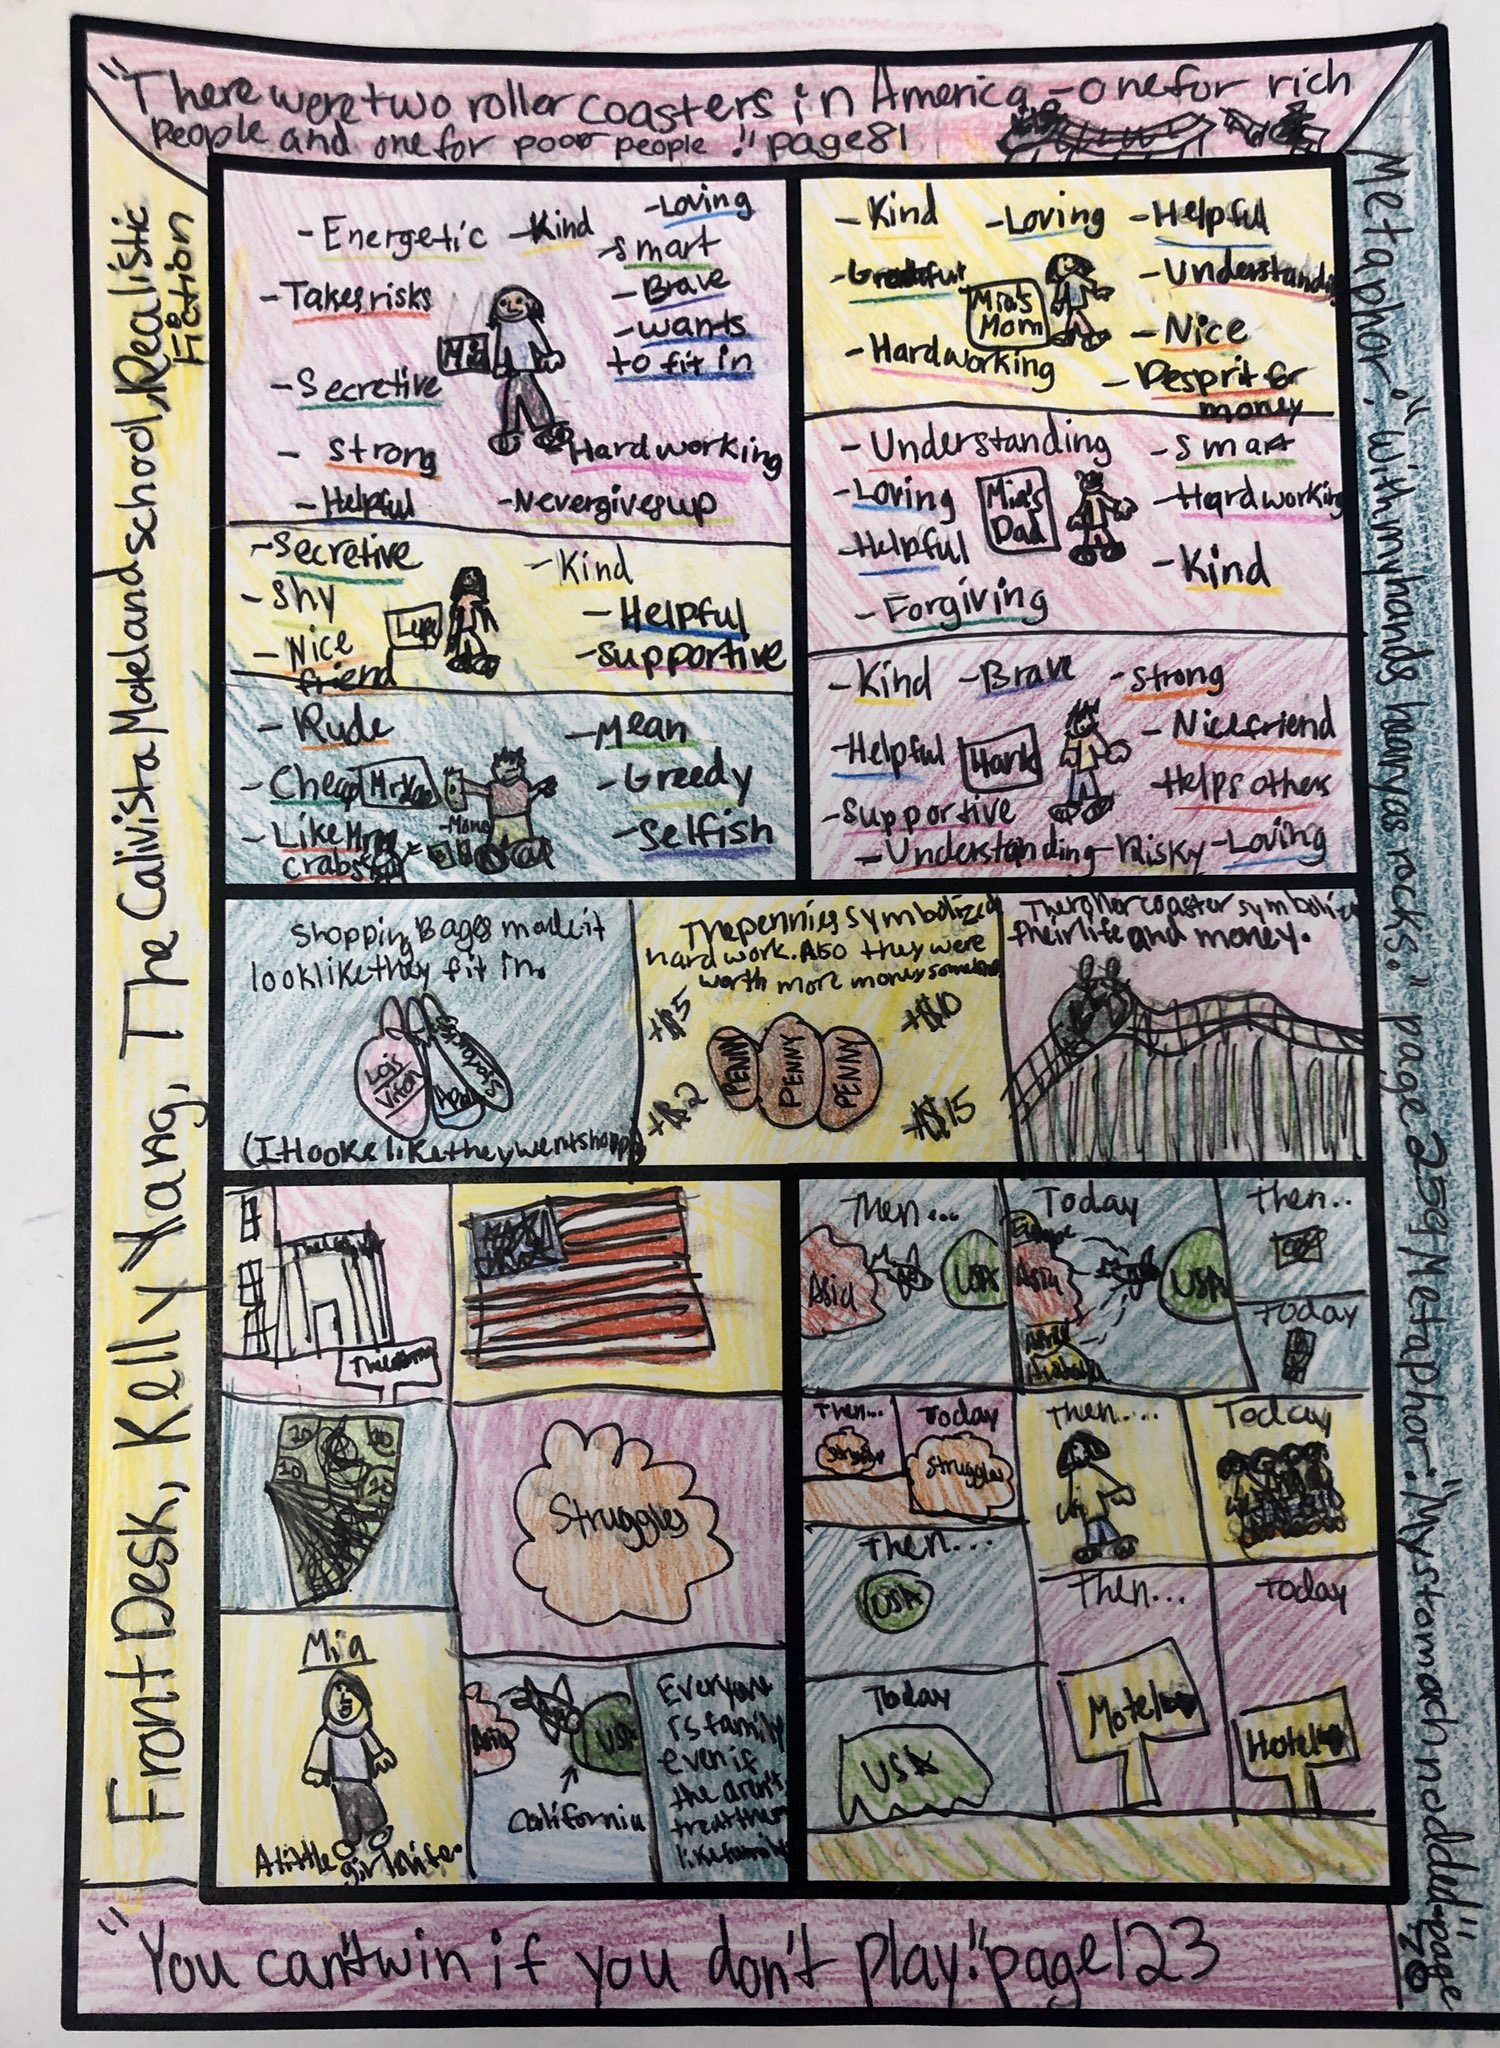 "There were two roller coasters in America - one for rich
people and one for poor people." page 81
Front Desk, Kelly Yang, The Calivista Motel and school, Realistic
Fiction
Metaphor: "With my hands heavy as rocks." page 259
Metaphor: "My stamach nodded" page 26
- Energetic
- Kind
- Loving
- Smart
- Takes risks
- Brave
- wants
to fit in
Mia
- Secretive
- Strong
- Hardworking
- Helpful
- Never gives up
- Secretive
- Kind
- Shy
Lupe
- Helpful
- Nice
friend
- Supportive
- Rude
- Mean
- Cheap
Mr. Yao
- Greedy
- Like
crabs
- Money
- Selfish
- Kind
- Loving
- Helpful
- Grateful
Mia's
Mom
- Understandi
- Hardworking
- Nice
- Desprit for
money
- Understanding
- Smart
- Loving
Mia's
Dad
- Hardworking
- Helpful
- Kind
- Forgiving
- Kind
- Brave
- Strong
- Helpful
Hank
- Nice friend
- Supportive
- Helps others
- Understanding
- Risky
- Loving
Shopping Bages made it
look like they fit in.
(It looke like they went shopp
The pennies symbolized
hard work. Also they were
worth more money
+$5
+$10
PENNY PENNY PENNY
+$2
+$15
The roller coaster symbolize
their life and money.
10
20
Struggles
Mia
A little girls life.
Asia
USA
California
Everyone
is family
even if
the arn't
treat them
like family
Then...
Asia
USA
Today
Europe
Asia
USA
Then...
Today
Then...
Today
Struggles
Then....
Today
Then...
USA
Today
USA
Then...
Motel
Today
Hotel
"You can't win if you don't play." page 123